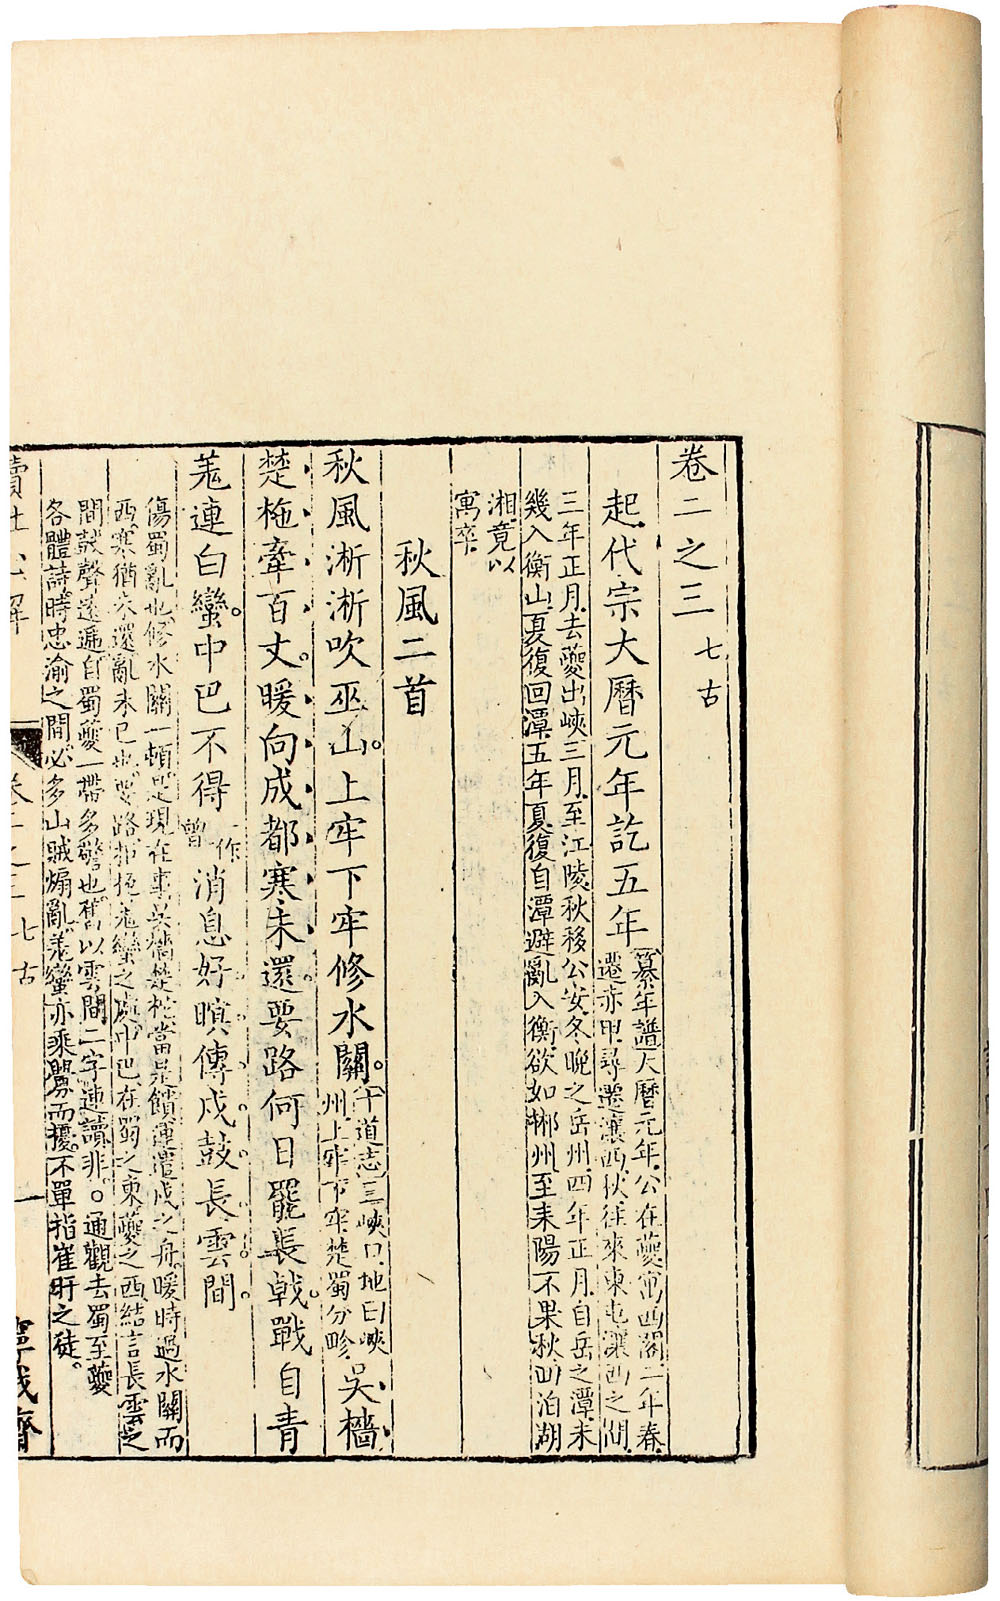 卷二之三 七古
起代宗大曆元年訖五年 纂年譜大曆元年公在夔寓西閣二年春
遷赤甲尋遷瀼西秋往來東屯瀼西之間
三年正月去夔出峽三月至江陵秋移公安冬晚之岳州四年正月自岳之潭未
幾入衡山夏復回潭五年夏復自潭避亂入衡欲如郴州至耒陽不果秋泊湖
湘竟以
寓卒
秋風二首
秋風淅淅吹巫山。上牢下牢修水關。十道志三峽口地曰峽
州上牢下牢楚蜀分畛 吳檣
楚柂牽百丈。暖向成都寒未還。要路何日罷長戟。戰自青
羌連白蠻。中巴不得 一作
曾 消息好暝傳戍鼓長雲間。
傷蜀亂也修水關一頓是現在事吳檣楚柂當是饋運遣戍之舟暖時過水關而
西寒猶未還亂未已也要路羌蠻之處中巴在蜀之東夔之西結言長雲之
間鼓聲遠遍自蜀夔一帶多警也舊以雲間二字連讀非○通觀去蜀至夔
各體詩時忠渝之間必多山賊煽亂羌蠻亦乘釁而擾不單指崔旰之徒。
讀杜心解
卷二之三 七古
一
寧我齋